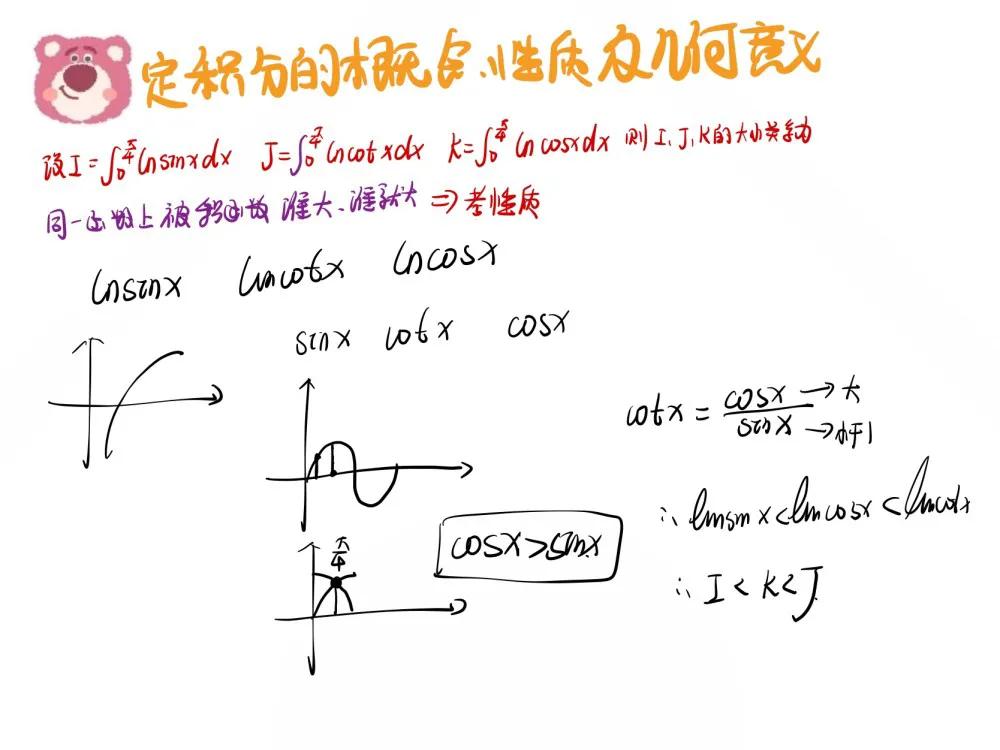 定积分的概念、性质及几何意义
设I=∫₀^(π/4) lnsinxdx J=∫₀^(π/4) lncotxdx K=∫₀^(π/4) lncosxdx 则I,J,K的大小关系为
同一函数上被积函数谁大、谁就大 ⇒考性质
lnsinx lncotx lncosx
sinx cotx cosx
cotx = cosx/sinx →大 →小于1
π/4
cosx>sinx
∴ lnsinx<lncosx<lncotx
∴ I<K<J